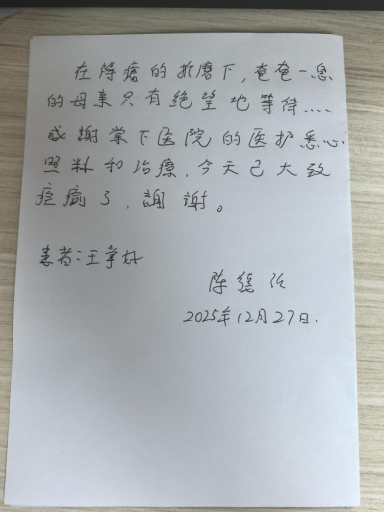 在陪癌的折磨下,奄奄一息
的母亲只有绝望地等待....
感謝棠下医院的医护悉心
照料和治療,今天已大致
痊癒了,謝谢。
患者:王掌好
陈
2025年12月27日.